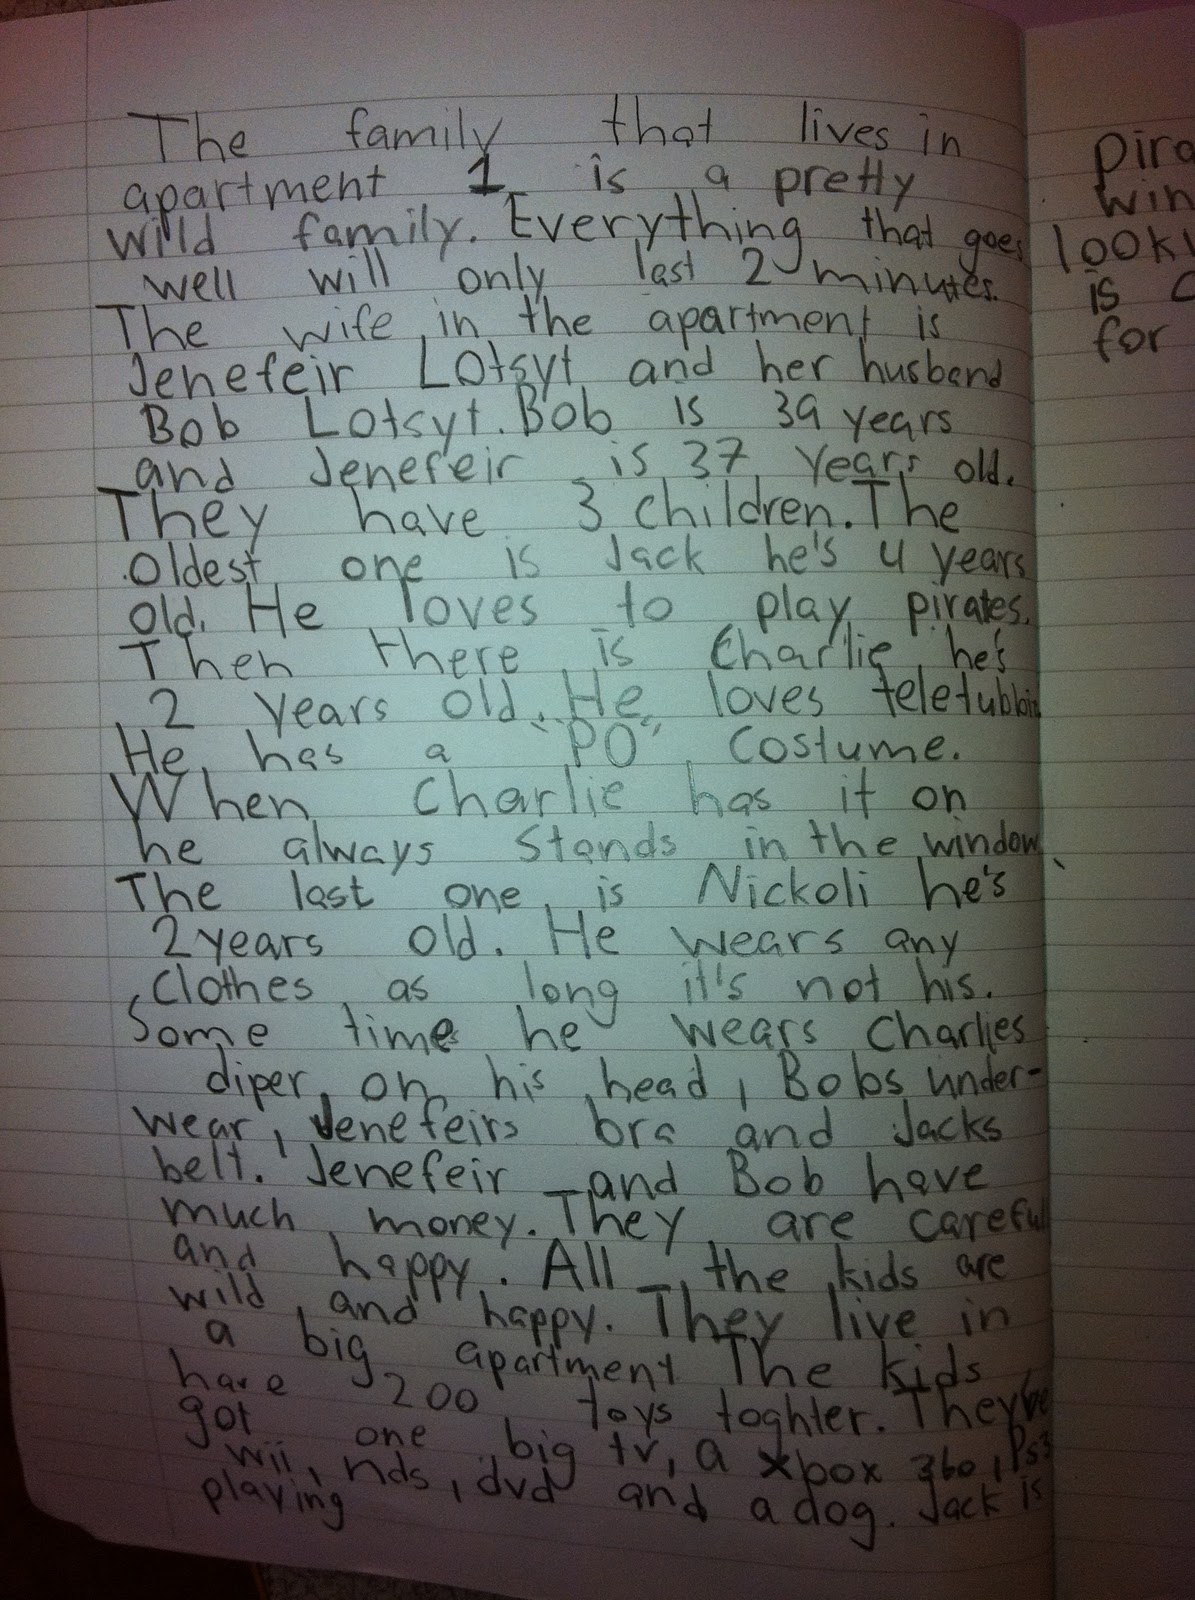 The family that lives in
apartment 1 is a pretty
wild family. Everything that goes
well will only last 2 minutes.
The wife in the apartment is
Jenefeir Lotsyt and her husband
Bob Lotsyt. Bob is 39 years
and Jenefeir is 37 years old.
They have 3 children. The
oldest one is Jack he's 4 years
old. He loves to play pirates.
Then there is Charlie he's
2 years old. He loves teletubbies
He has a "PO" costume.
When Charlie has it on
he always stands in the window
The last one is Nickoli he's
2 years old. He wears any
clothes as long it's not his.
Some time he wears Charlies
diper on his head, Bobs under-
wear, Jenefeirs bra and Jacks
belt. Jenefeir and Bob have
much money. They are careful
and happy. All the kids are
wild and happy. They live in
a big apartment The kids
have 200 toys toghter. They've
got one big tv, a xbox 360, Ps3
wii, nds, dvd and a dog. Jack is
playing
look
is
for